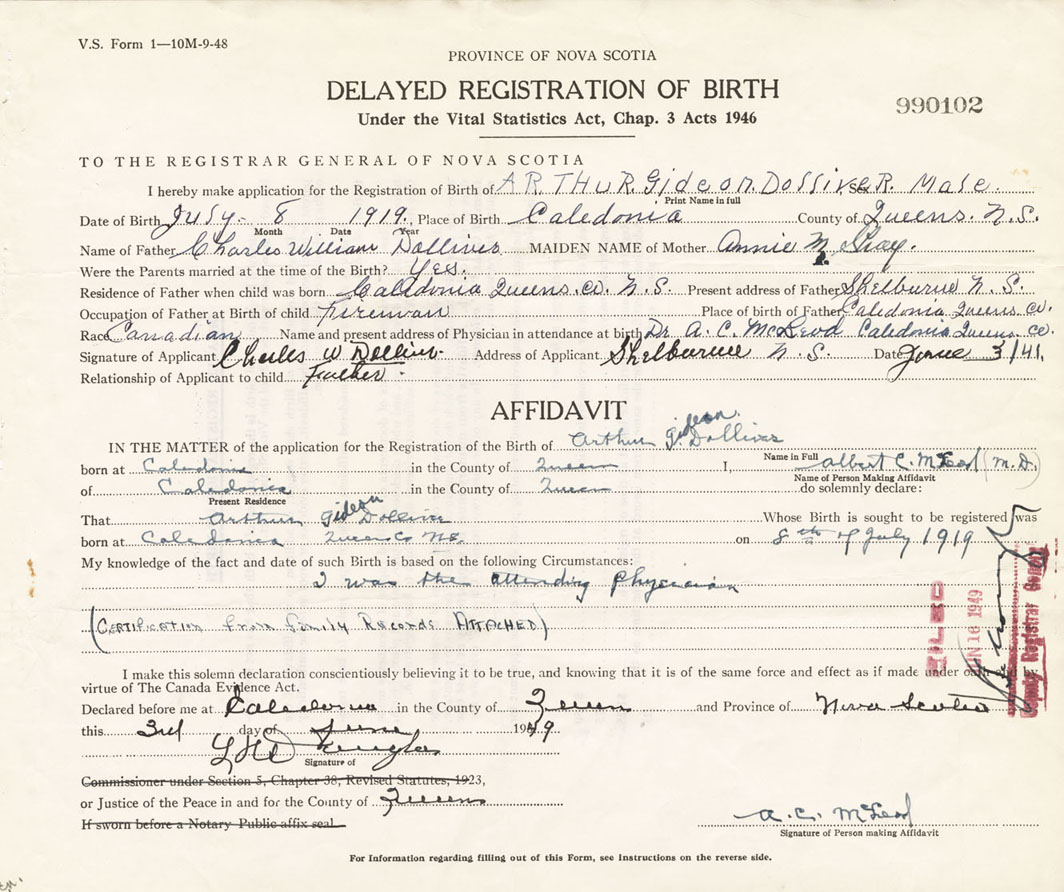 V.S. Form 1—10M-9-48
PROVINCE OF NOVA SCOTIA
DELAYED REGISTRATION OF BIRTH
990102
Under the Vital Statistics Act, Chap. 3 Acts 1946
TO THE REGISTRAR GENERAL OF NOVA SCOTIA
I hereby make application for the Registration of Birth of ARTHUR Gideon Dolliver. Sex Male.
Print Name in full
Date of Birth July - 8 1919. Place of Birth Caledonia County of Queens. N.S.
Month Date Year
Name of Father Charles William Dolliver MAIDEN NAME of Mother Annie M. Gray.
Were the Parents married at the time of the Birth? Yes.
Residence of Father when child was born Caledonia Queens. co. N.S. Present address of Father Shelburne N.S.
Occupation of Father at Birth of child Fireman Place of birth of Father Caledonia Queens. co.
Race Canadian Name and present address of Physician in attendance at birth Dr. A. C. McLeod Caledonia Queens co.
Signature of Applicant Charles W Dolliver. Address of Applicant Shelburne N.S. Date June 3/
Relationship of Applicant to child Father -
AFFIDAVIT
IN THE MATTER of the application for the Registration of the Birth of Arthur Gideon Dolliver
Name in Full
born at Caledonia in the County of Queens I, Albert C. McLeod (M.D.)
Name of Person Making Affidavit
of Caledonia in the County of Queens do solemnly declare:
Present Residence
That Arthur Gideon Dolliver Whose Birth is sought to be registered was
born at Caledonia Queens Co N.S. on 8th of July 1919
My knowledge of the fact and date of such Birth is based on the following Circumstances:
I was the attending Physician
(Certification from Family Records Attached)
FILED
JUN 16 1949
Deputy Registrar General
I make this solemn declaration conscientiously believing it to be true, and knowing that it is of the same force and effect as if made under oath
virtue of The Canada Evidence Act.
Declared before me at Caledonia in the County of Queens and Province of Nova Scotia
this 3rd day of June 1949
Douglas
Signature of
Commissioner under Section 5, Chapter 38, Revised Statutes, 1923,
or Justice of the Peace in and for the County of Queens
A. C. McLeod
If sworn before a Notary Public affix seal.
Signature of Person making Affidavit
For Information regarding filling out of this Form, see Instructions on the reverse side.